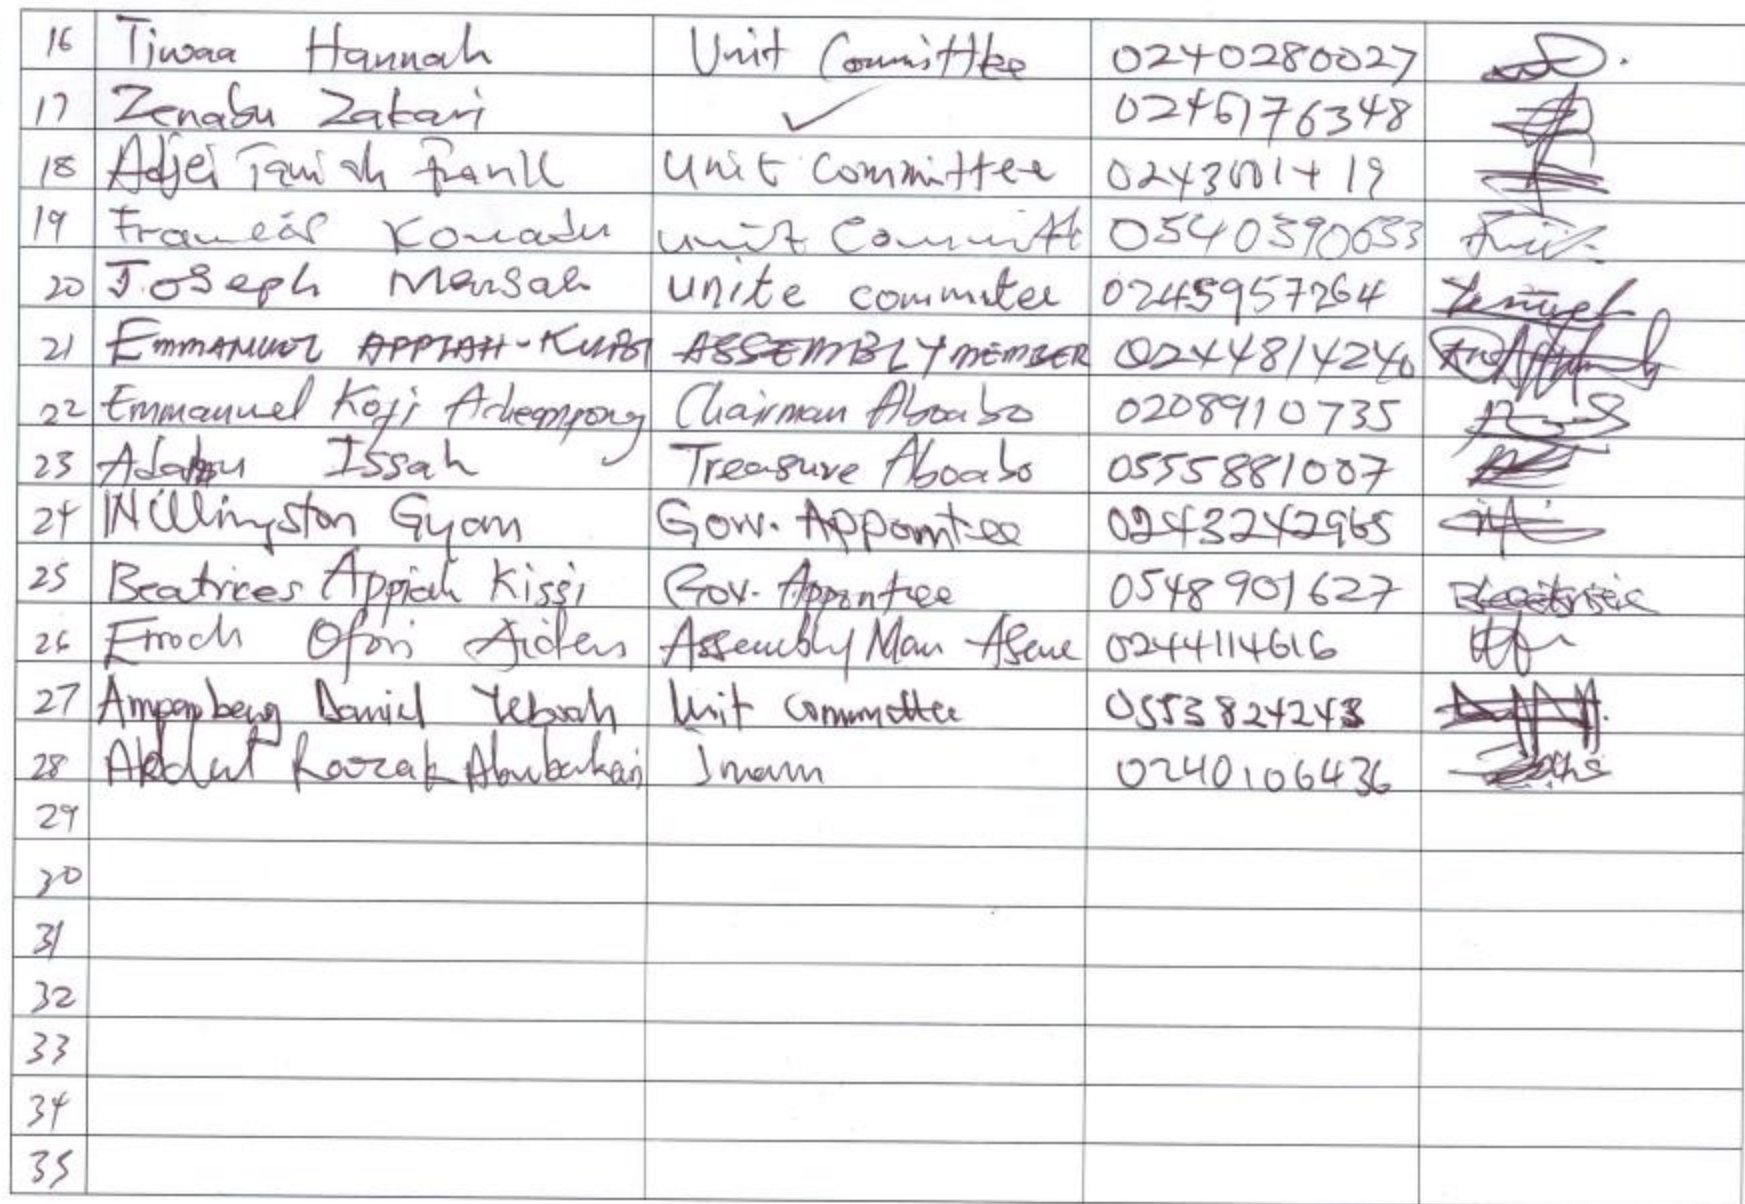 16 Tiwaa Hannah Unit Committee 0240280027
17 Zenabu Zakari ✓ 0246176348
18 Adjei Frank Unit Committee
19 Konadu unit Committ 0540590653
20 Joseph Mensah unite commitee 0245957264
21 EMMANUEL APPIAH-KUBI ASSEMBLY MEMBER 0244814240
22 Emmanuel Kofi Acheampong Chairman Aboabo 0208910735
23 Adamu Issah Treasure Aboabo 0555881007
24 Willingston Gyam Gov. Appointee 0243242965
25 Beatrices Appiah Kissi Gov. Appointee 0548901627
26 Enoch Ofori Assembly Man Asene 0244114616
27 Daniel Yeboah Unit Committee 0553824243
28 Abdul Razak Abubakari Imam 0240106436
29
30
31
32
33
34
35